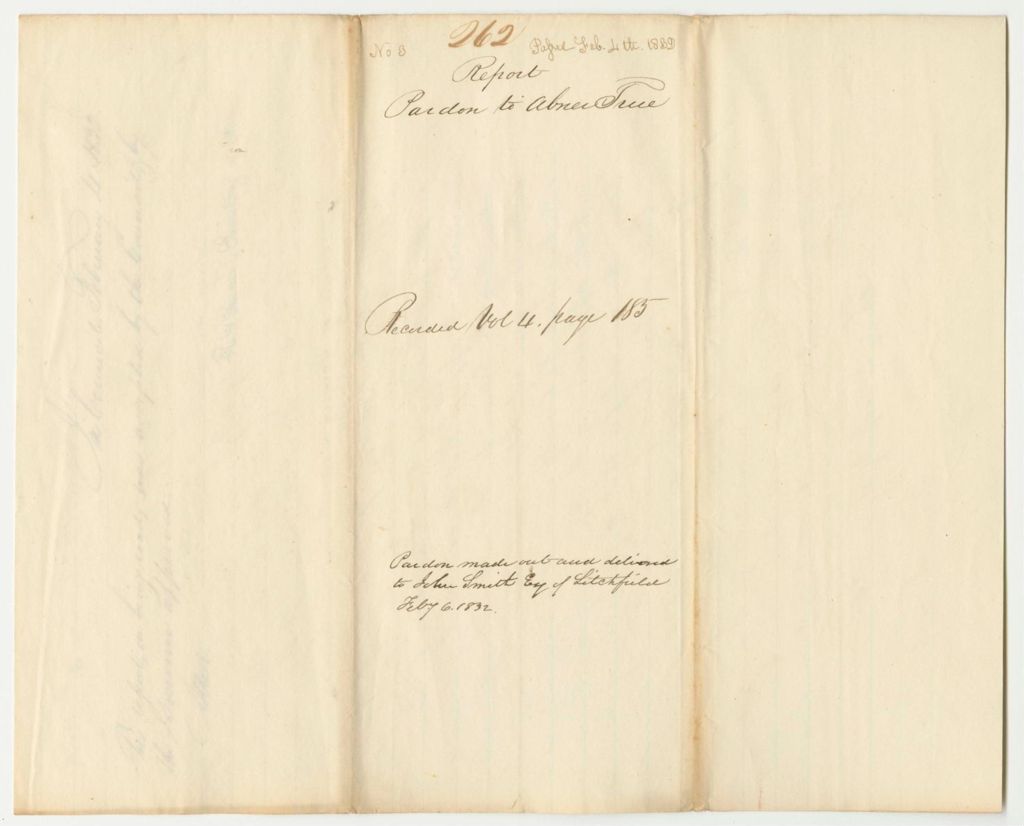 No 3
262
Passed Feb. 4th. 1832
Report
Pardon to Abner True
Recorded Vol 4. page 185
Pardon made out and delivered
to John Smith Esq of Litchfield
Feby 6. 1832.